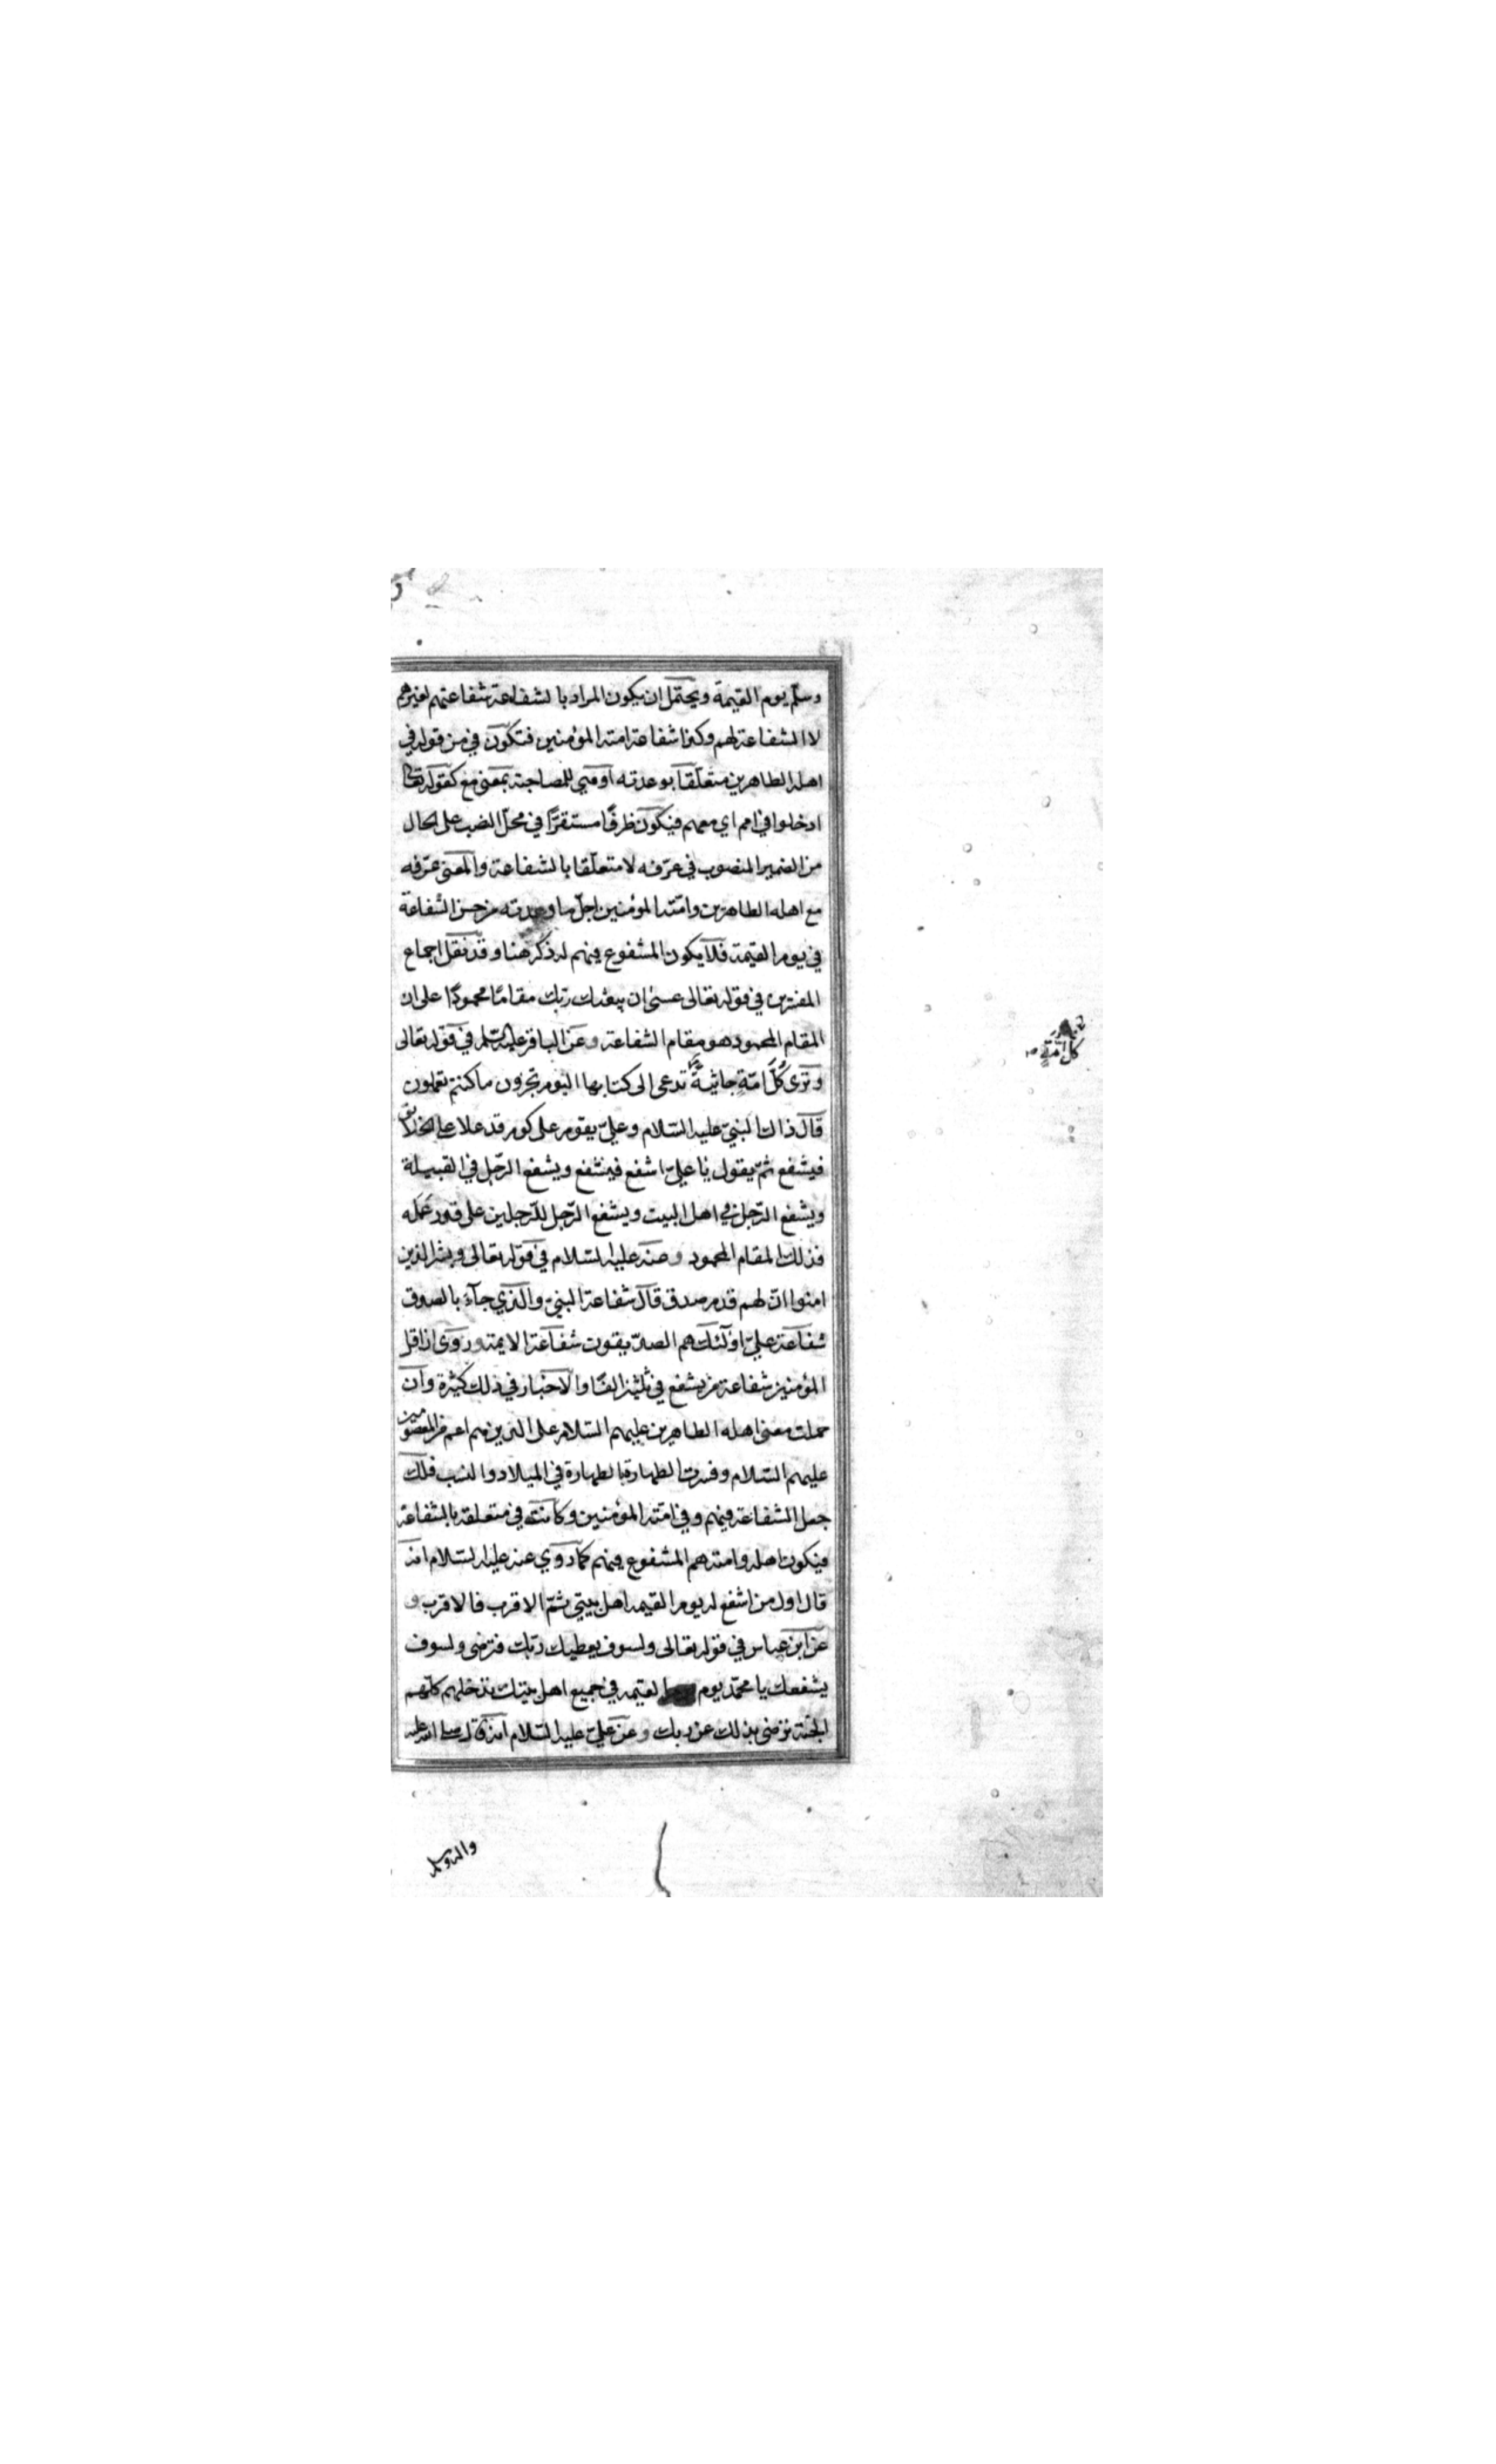 وسلّم يوم القيمة ويحتمل ان يكون المراد بالشفاعة شفاعتهم لغيرهم
لا الشفاعة لهم وكذا شفاعة امته المؤمنين فتكون في من قوله في
اهله الطاهرين متعلّقا بوعدته او هي للمصاحبة بمعنى مع كقوله تعالى
ادخلوا في امم اي معهم فيكون ظرفًا مستقرًا في محلّ النصب على الحال
من الضمير المنصوب في عرّفه لا متعلّقا بالشفاعة والمعنى عرّفه
مع اهله الطاهرين وامّته المؤمنين اجلّ ما وعدته من حسن الشفاعة
في يوم القيمة فلا يكون المشفوع فيهم له ذكر هنا وقد نقل اجماع
المفسّرين في قوله تعالى عسىٰ ان يبعثك ربّك مقامًا محمودًا على ان
المقام المحمود هو مقام الشفاعة وعن الباقر عليه السّلم في قوله تعالى
وترى كُلَّ امّةٍ جاثيةً تدعى الى كتابها اليوم تجزون ما كنتم تعملون
قال ذاك النبيّ عليه السّلام وعليّ يقوم على كوم قد علا على الخلائق
فيشفع ثمّ يقول يا عليّ اشفع فيشفع ويشفع الرّجل في القبيلة
ويشفع الرّجل في اهل البيت ويشفع الرّجل للرّجلين على قدر عَمَله
فذلك المقام المحمود وعنه عليه السّلام في قوله تعالى وبشر الذين
امنوا انّ لهم قدم صدق قال شفاعة النبيّ والّذي جآء بالصدق
شفاعة عليّ اولئك هم الصدّيقون شفاعة الايمة وروى ان اقل
المؤمنين شفاعة من يشفع في ثلثين الفًا والاخبار في ذلك كثيرة وان
حملت معنى اهله الطاهرين عليهم السّلام على الذين هم اعم من المعصومين
عليهم السّلام وفسرت الطهارة بالطهارة في الميلاد والنسب فلك
جعل الشفاعة فيهم وفي امّته المؤمنين وكانت في متعلقة بالشفاعة
فيكون اهله وامته هم المشفوع فيهم كما روي عنه عليه السّلام انه
قال اول من اشفع له يوم القيمه اهل بيتي ثمّ الاقرب فالاقرب و
عن ابن عباس في قوله تعالى ولسوف يعطيك ربّك فترضى ولسوف
يشفعك يا محمّد يوم القيمه في جميع اهل بيتك تدخلهم كلّهم
الجنّة ترضى بذلك عن ربك وعن عليّ عليه السّلام انه قال صلى الله عليه
كل امّةٍ
واله وسلم